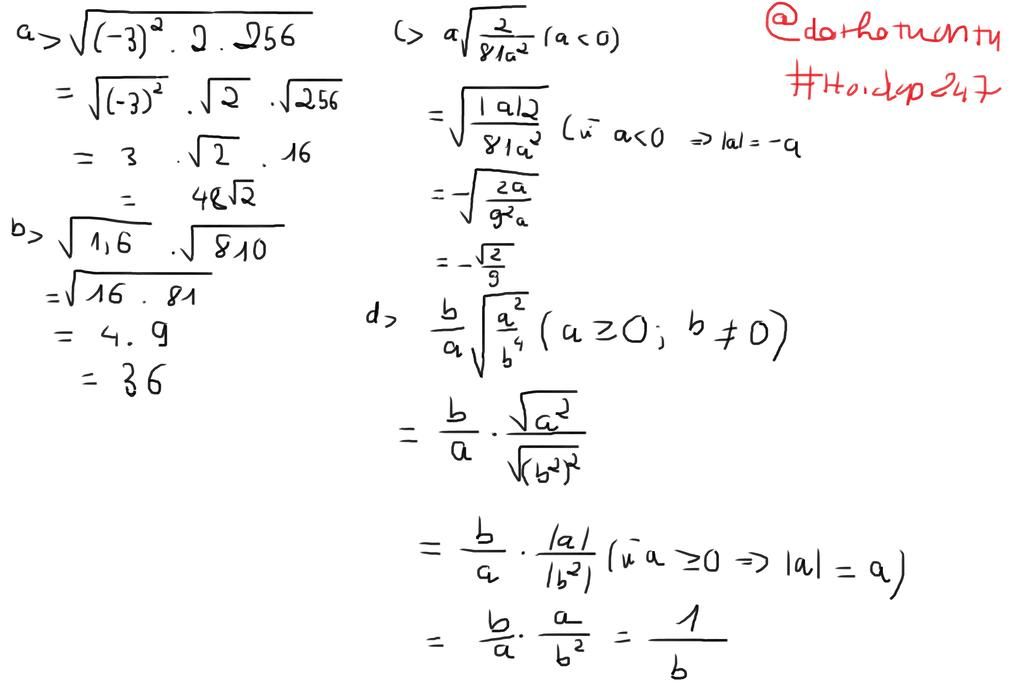 a> √((-3)² . 2 . 256)
= √((-3)²) . √2 . √256
= 3 . √2 . 16
= 48√2
b> √(1,6) . √(810)
= √(16 . 81)
= 4 . 9
= 36
c> a√(2/(81a²)) (a<0)
= √(|a|2/(81a²)) (vì a<0 => |a| = -a
= -√(2a/(9²a))
= -√2/9
d> b/a √(a²/b⁴) (a ≥ 0; b ≠ 0)
= b/a . √(a²)/√((b²)²)
= b/a . |a|/|b²| (vì a ≥ 0 => |a| = a)
= b/a . a/b² = 1/b